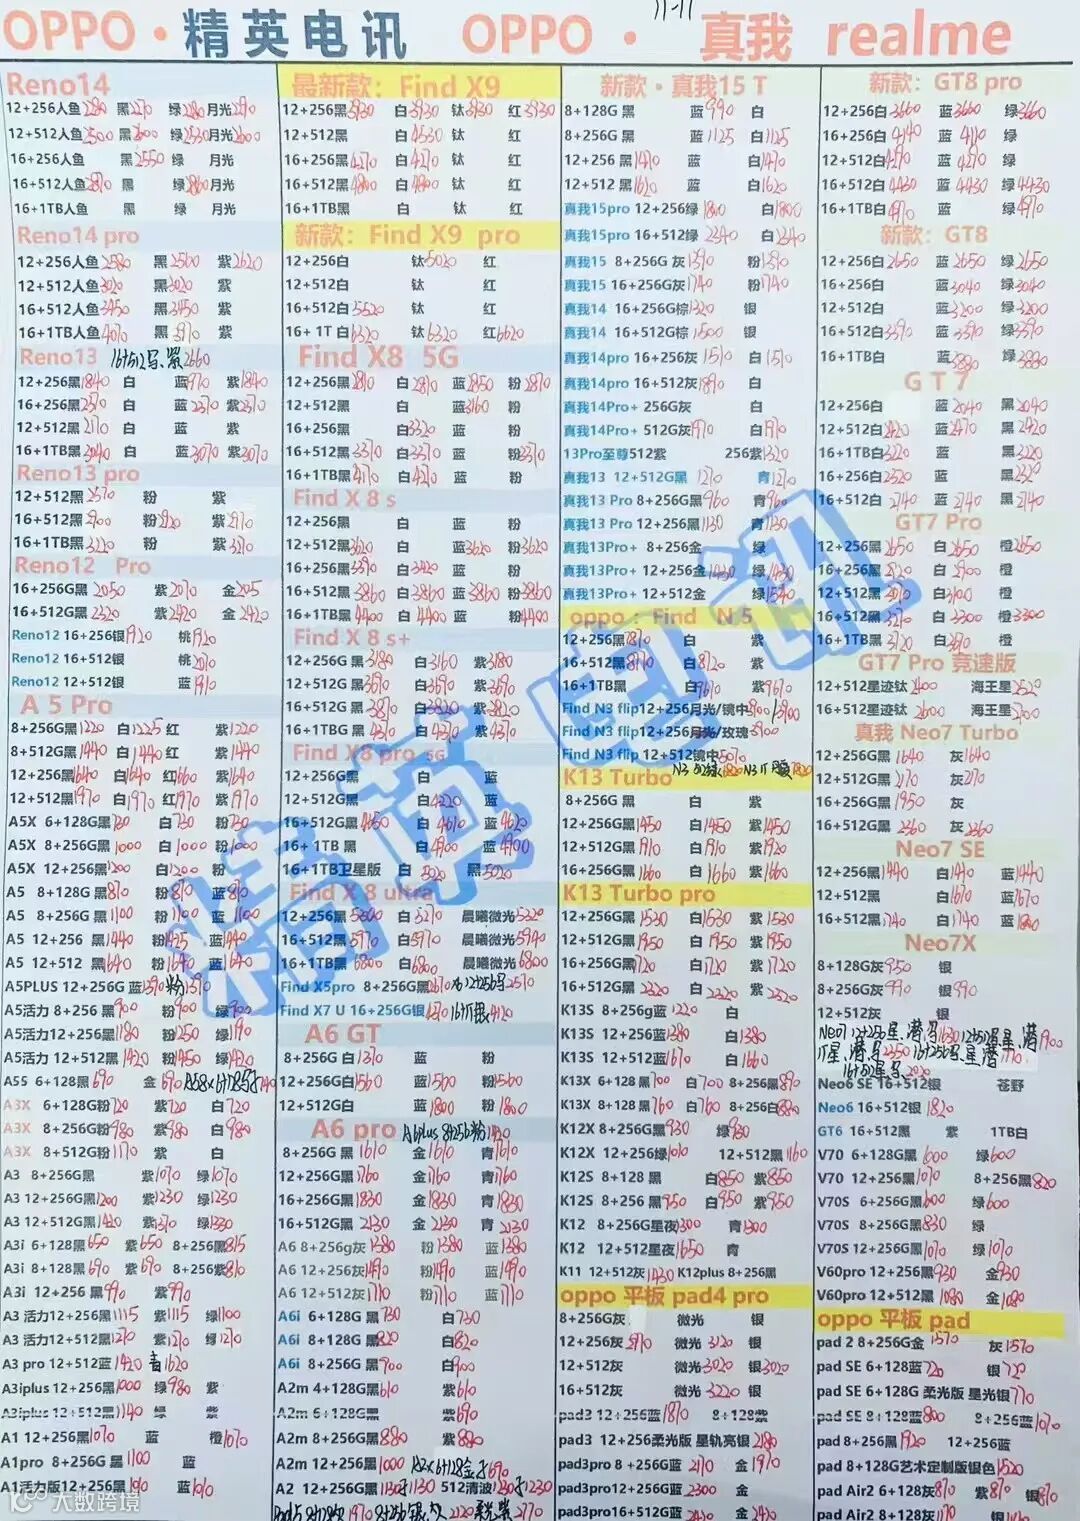 11-11
OPPO·精英电讯 OPPO· 真我 realme
Reno14
12+256人鱼2280 黑2270 绿2280月光2290
12+512人鱼2500 黑2600 绿2530月光2600
16+256人鱼 黑2550 绿 月光
16+512人鱼2870 黑 绿2860月光
16+1TB人鱼 黑 绿 月光
Reno14 pro
12+256人鱼2580 黑2560 紫2620
12+512人鱼3020 黑3020 紫
16+512人鱼3450 黑3450 紫
16+1TB人鱼4070 黑3970 紫
Reno13 16+512 紫2660
12+256黑1840 白 蓝 紫1840
16+256黑2370 白 蓝2370 紫2370
12+512黑2170 白 蓝 紫
16+1TB黑3040 白 蓝3070 紫3070
Reno13 pro
12+512黑2570 粉 紫
16+512黑2900 粉2920 紫2970
16+1TB黑3220 粉 紫3270
Reno12 Pro
16+256G黑2050 紫2070 金2025
16+512G黑2320 紫2420 金2420
Reno12 16+256银1920 桃1920
Reno12 16+512银 桃2010
Reno12 12+512银 蓝1910
A 5 Pro
8+256G黑1220 白1225 红 紫1220
8+512G黑1440 白1440 红 紫1440
12+256黑1640 白1640 红1660 紫1640
12+512黑1970 白1970 红1970 紫1970
A5X 6+128G黑730 白730 粉730
A5X 8+256G黑1000 白1000 粉1000
A5X 12+256黑1200 白1200 粉
A5 8+128G 黑870 粉870 蓝870
A5 8+256G 黑1100 粉1100 蓝1100
A5 12+256 黑1440 粉1425 蓝1440
A5 12+512 黑1640 粉1640 蓝1640
A5PLUS 12+256G 蓝1390 粉1390
A5活力 8+256 黑900 粉900 绿900
A5活力 12+256黑1180 粉1250 绿1190
A5活力 12+512黑1420 粉1450 绿1420
A5S 6+128黑690 金690
A3X 6+128G粉720 紫720 白720
A3X 8+256G粉980 紫980 白980
A3X 8+512G粉1170 紫 白
A3 8+256G黑 紫1070 绿1070
A3 12+256G黑1200 紫1230 绿1230
A3 12+512G黑1420 紫1370 绿1330
A3i 6+128黑650 紫650 8+256黑815
A3i 8+128黑690 紫690 8+256紫810
A3i 12+256 黑990 紫990
A3 活力12+256黑1115 紫1115 绿1100
A3 活力12+512黑1270 紫1270 绿1270
A3 pro 12+512蓝1420 1620
A3iplus 12+256黑1000 绿980 紫
A3iplus 12+512黑1140 绿 紫
A1 12+256黑1070 蓝 橙1070
A1pro 8+256G 黑1100 蓝
A1活力版12+256黑 蓝1010
最新款：Find X9
12+256黑3930 白3930 钛3930 红3930
12+512黑 白4530 钛 红
16+256黑4270 白4270 钛 红
16+512黑4800 白4800 钛 红
16+1TB黑 白 钛 红
新款：Find X9 pro
12+256白 钛5020 红
12+512白 钛 红
16+512白5520 钛 红
16+ 1T 白6320 钛6320 红6620
Find X8 5G
12+256黑2810 白2810 蓝2850 粉2870
12+512黑 白 蓝3160 粉
16+256黑 白3320 蓝 粉
16+512黑3370 白3370 蓝 粉3370
16+1TB黑4170 白4270 蓝 粉
Find X 8 s
12+256黑 白 蓝 粉
12+512黑3620 白 蓝3620 粉3620
16+256黑3390 白3420 蓝 粉
16+512黑3860 白3860 蓝3860 粉3860
16+1TB黑4400 白4400 蓝 粉4400
Find X 8 s+
12+256G 黑3180 白3160 紫3180
12+512G 黑3690 白3690 紫3690
16+512G 黑3870 白3820 紫3820
16+1TBG 黑4370 白4370 紫4370
Find X8 pro 5G
12+256G黑 白 蓝
12+512G黑 白4220 蓝
16+512G黑4650 白4610 蓝4620
16+ 1TB 黑 白4900 蓝4900
16+1TB卫星版 白5020 黑5020
Find X 8 ultra
12+256黑5300 白5270 晨曦微光5320
16+512黑5970 白5970 晨曦微光5940
16+1TB黑6800 白6800 晨曦微光6800
Find X5pro 8+256G黑2610 12+256 2570
Find X7 U 16+256G银4370 16+1T银4120
A6 GT
8+256G 白1370 蓝 粉
12+256G白1560 蓝1560 粉1560
12+512G白 蓝1800 粉1800
A6 pro A6plus 8+256粉1420
8+256G 黑1610 金1610 青1610
12+256G黑1760 金1760 青1760
16+256G黑1830 金1830 青1830
16+512G黑2130 金2130 青2130
A6 8+256g灰1380 粉1380 蓝1380
A6 12+256灰1490 粉1490 蓝1490
A6 12+512灰1710 粉1710 蓝1710
A6i 6+128G 黑730 白730
A6i 8+128G 黑820 白820
A6i 8+256G 黑900 白900
A2m 4+128G黑610 紫610
A2m 6+128G黑 紫690
A2m 8+256G黑880 紫880
A2m 12+256黑1000 A2x 6+128金690
A2 12+256G黑1130 1130 512清波1230 1230
新款·真我15 T
8+128G 黑 蓝990 白
8+256G 黑 蓝1125 白1125
12+256 黑1470 蓝 白1470
12+512 黑1620 蓝 白1620
真我15pro 12+256绿1800 白1800
真我15pro 16+512绿2340 白2340
真我15 8+256G 灰1390 粉1390
真我15 16+256G灰1740 粉1740
真我14 16+256G棕1320 银
真我14 16+512G棕1500 银
真我14pro 16+256灰1510 白1510
真我14pro 16+512灰1890 白
真我14Pro+ 256G灰 白
真我14Pro+ 512G灰1970 白1970
13Pro至尊512紫 256紫1320
真我13 12+512G黑1270 青1270
真我13 Pro 8+256G黑960 青960
真我13 Pro 12+256黑1130 青1130
真我13Pro+ 8+256金 绿
真我13Pro+ 12+256金1430 绿1430
真我13Pro+ 12+512金 绿1540
oppo：Find N 5
12+256黑7870 白 紫
16+512黑8190 白8120 紫
16+1TB黑 白9670 紫9670
Find N3 flip12+256月光/镜中3900/3900
Find N3 flip 12+256月光/玫瑰3900
Find N3 flip 12+512镜中5070
K13 Turbo
8+256G 黑 白 紫
12+256G黑1450 白1450 紫1450
12+512G黑1910 白1910 紫1920
16+256G黑 白1660 紫1660
K13 Turbo pro
12+256G黑1530 白1630 紫1530
12+512G黑1950 白1950 紫1950
16+256G黑1720 白1720 紫1720
16+512G黑2320 白2320 紫2320
K13S 8+256g蓝1220 白
K13S 12+256蓝1380 白1380
K13S 12+512蓝1670 白1660
K13X 6+128 黑700 白700 8+256黑890
K13X 8+128 黑760 白760 8+256白880
K12X 8+256G 黑930 绿930
K12X 12+256绿1010 12+512黑1160
K12S 8+128 黑 白850 紫850
K12S 8+256 黑950 白950 紫950
K12 8+256G星夜1300 青1300
K12 12+512星夜1650 青
K11 12+512灰1430 K12plus 8+256黑
oppo 平板 pad4 pro
8+256G灰 微光 银
12+256灰2970 微光3120 银
12+512灰 微光3020 银3020
16+512灰 微光3220 银
pad3 12+256蓝1870 8+128紫
pad3 12+256柔光版 星轨亮银2180
pad3pro 8+256G 蓝2170 金1970
pad3pro12+256G蓝2300 金
pad3pro16+512G蓝2430 金2430
新款：GT8 pro
12+256白3660 蓝3660 绿3660
16+256白4140 蓝4110 绿
12+512白4270 蓝4270 绿
16+512白4430 蓝4430 绿4430
16+1TB白4970 蓝 绿4970
新款：GT8
12+256白2650 蓝2650 绿2650
16+256白 蓝3040 绿3040
12+512白 蓝3200 绿3200
16+512白3390 蓝3390 绿3390
16+1TB白 蓝3880 绿3880
G T 7
12+256白 蓝2040 黑2040
12+512白2420 蓝2470 黑2420
16+1TB白 蓝3220 黑3220
16+256白2320 蓝2320 黑
16+512白2740 蓝2740 黑2740
GT7 Pro
12+256黑2650 白2650 橙2650
16+256黑2920 白2900 橙
12+512黑3010 白3100 橙
16+512黑3270 白3300 橙3300
16+1TB黑3720 白3690 橙
GT7 Pro 竞速版
12+512星迹钛2400 海王星2520
16+512星迹钛2600 海王星2700
真我 Neo7 Turbo
12+256G黑1640 灰1640
12+512G黑2170 灰2170
16+256G黑1950 灰
16+512G黑2360 灰2360
Neo7 SE
12+256黑1440 白1410 蓝1440
12+512黑 白1670 蓝1670
16+512黑1740 白1740 蓝1800
Neo7X
8+128G灰950 银
8+256G灰990 银990
Neo6 SE 16+512银 苍野
Neo6 16+512银1820
GT6 16+512黑 紫 1TB白
V70 6+128G黑600 绿600
V70 12+256黑1070 8+256黑820
V70S 6+256G黑600 绿600
V70S 8+256G黑830 绿
V70S 12+256G黑1070 绿1070
V60pro 12+256黑930 金930
V60pro 12+512黑1080 金1080
oppo 平板 pad
pad 2 8+256G金1570 灰1570
pad SE 6+128蓝720 银720
pad SE 6+128G 柔光版 星光银770
pad SE 8+128蓝800 8+256蓝1070
pad 8+256黑1920 12+256蓝
pad 8+128G艺术定制版银色1520
pad Air2 6+128灰870 紫870 银870
pad Air2 8+128G灰1170 紫 银
精英电讯
大数跨境